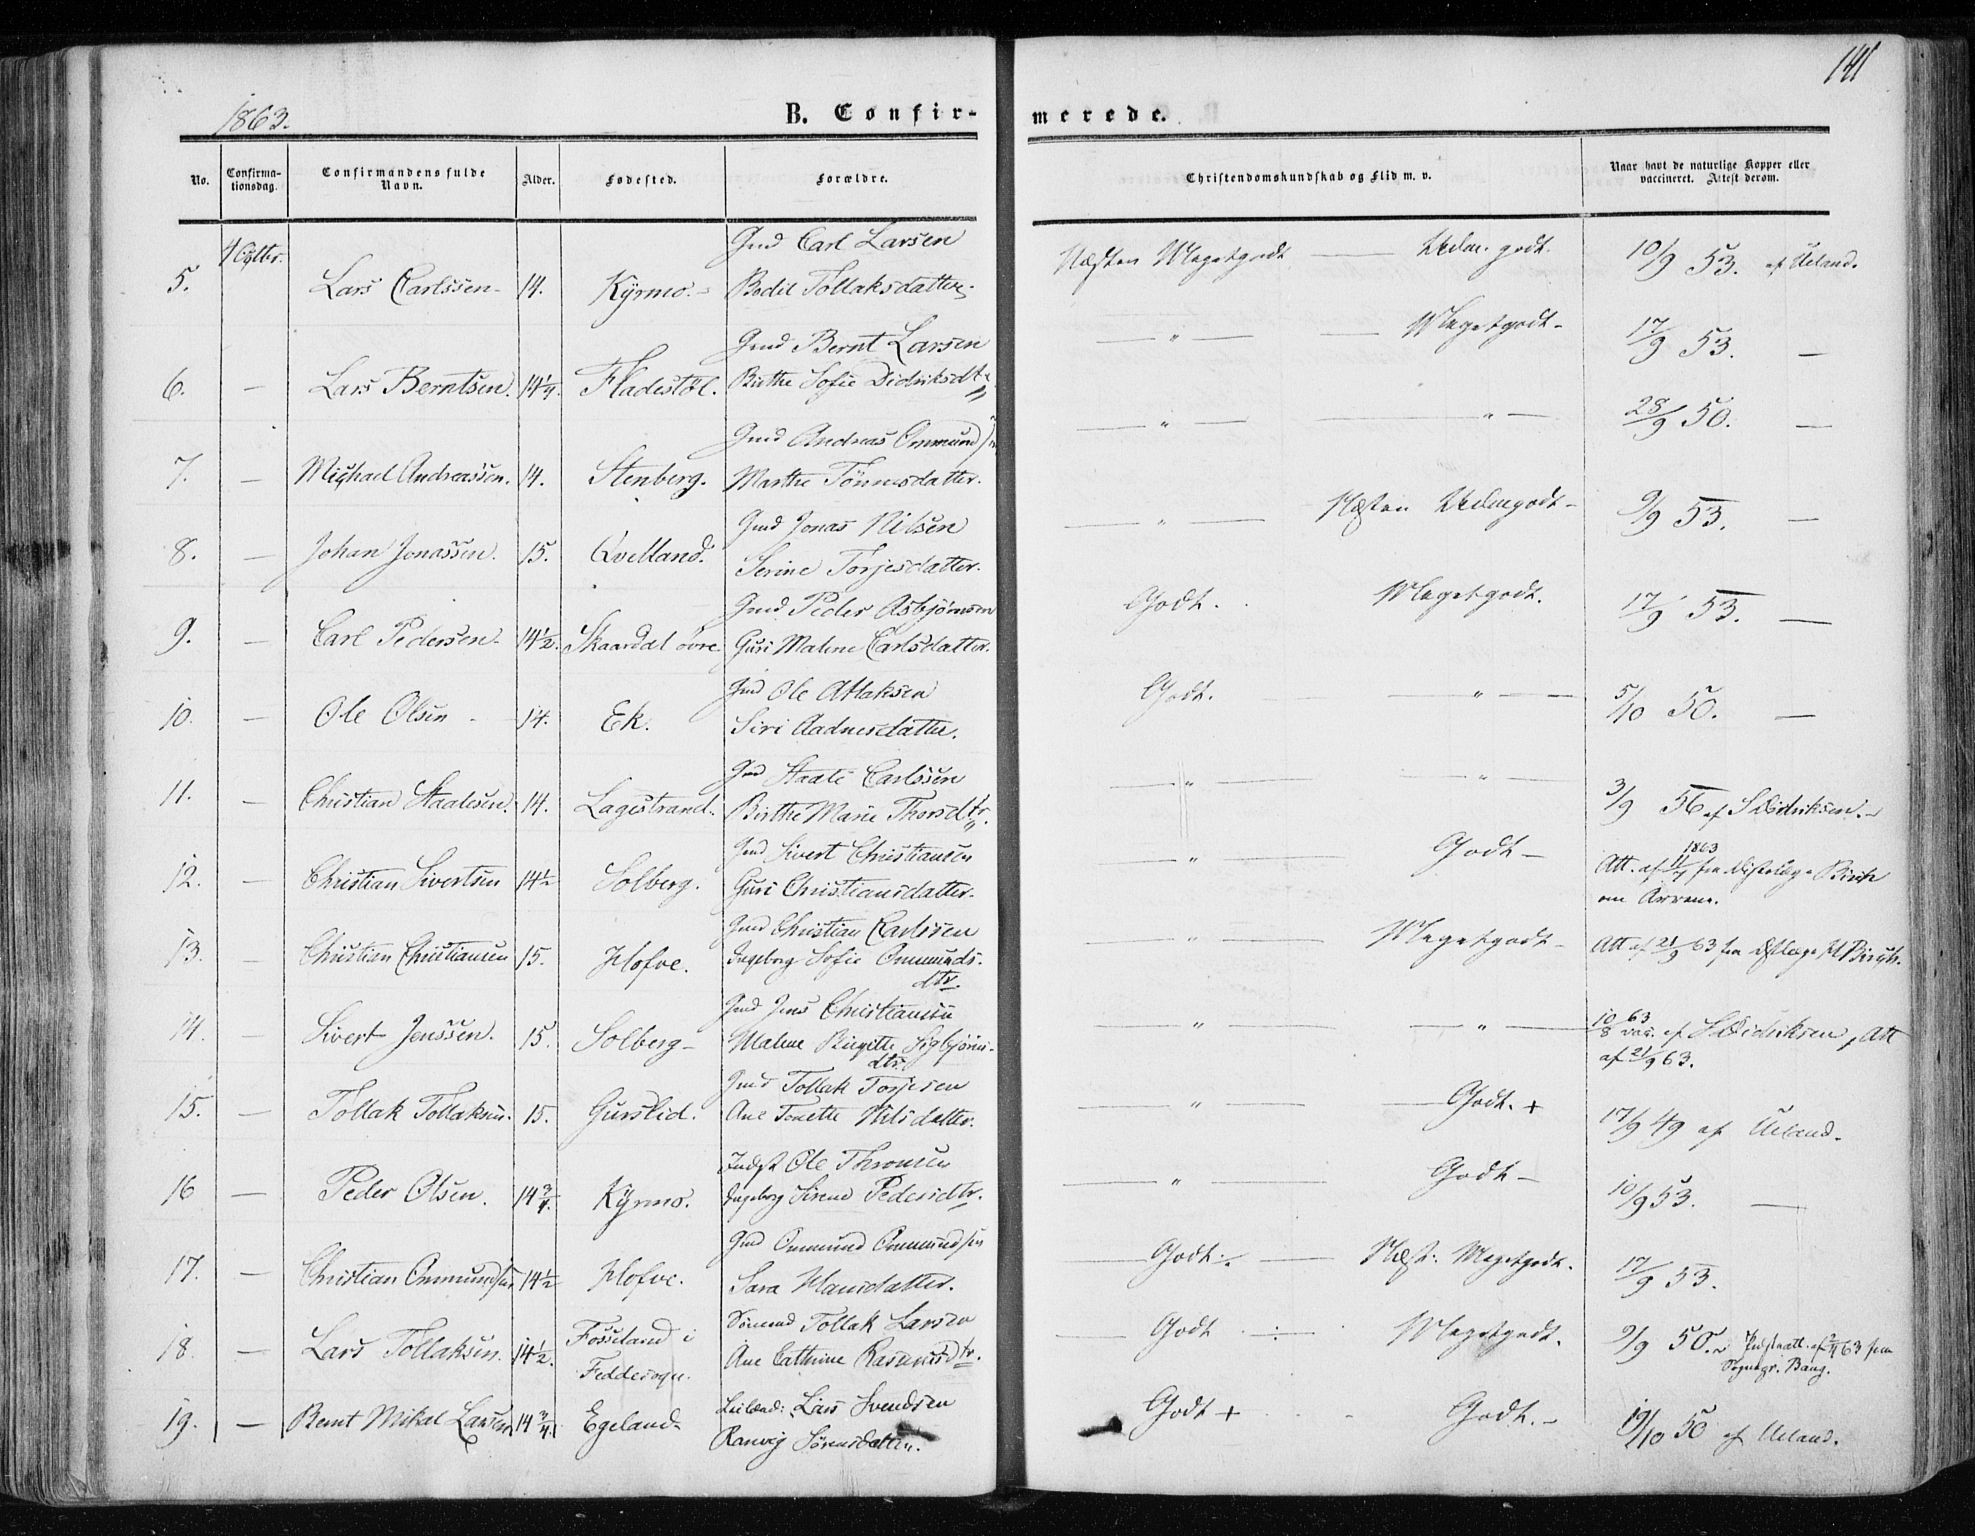 141
1863.
B. Confir-
merede.
No.
Confirma-
tionsdag.
Confirmandens fulde
Navn.
Alder.
Fødested.
Forældre.
Christendomskundskab og Flid m. v.
Naar havt de naturlige Kopper eller
vaccineret. Attest derom.
4 Octbr.
Gmd Carl Larsen
5. Lars Carlssen - 14. Kyrmo. - Bodil Tollaksdatter.
Næsten Megetgodt — Udm. godt. 10/9 53. af Ueland.
Gmd Bernt Larsen
6. — Lars Berntsen. 14 1/4 Fladestøl. Birthe Sofie Didriksdtr
— " — — Megetgodt - 17/9 53. —
Gmd Andreas Ommundsen
7. — Michael Andreassen. 14. Stenberg. Marthe Tønnesdatter.
— " — — " — 28/9 50. —
Gmd Jonas Nilsen
8. — Johan Jonassen. 15. Qvelland. Serine Torjesdatter.
— " — Næsten Udmgodt - 9/9 53. —
Gmd Peder Asbjørnsen
9. — Carl Pedersen - 14 1/2. Skaardal øvre. Guri Malene Carlsdatter.
Godt. Megetgodt. 17/9 53. —
Gmd Ole Atlaksen
10. — Ole Olsen - 14. Ek. Siri Aadnesdatter.
Godt. — " — 5/10 50. —
Gmd Staale Carlssen
11. — Christian Staalesen. 14. Lagestrand. Birthe Marie Thorsdtr.
— " — — " — 3/9 56 af S Didriksen. -
Gmd Sivert Christiansen
12. — Christian Sivertsen 14 1/2 Solberg. Guri Christiansdatter.
— " — Godt - Att. af 11/7 1863 fra Birch
om Arrene.
Gmd Christian Carlssen
13. — Christian Christiansen 15. Hofve. Ingeborg Sofie Ommunds-
dtr.
— " — Megetgodt - Att af 21/9 63 fra Birch.
Gmd Jens Christiansen
14. — Sivert Jenssen. 15. Solberg - Malene Birgitte Sigbjørns-
dtr.
— " — — " — 10/8 63 vac. af S Didriksen, Att
af 21/9 63.
Gmd Tollak Torjesen
15. — Tollak Tollaksen. 15. Gurslid. Ane Tonette Nilsdatter.
— " — — Godt. + 17/9 49 af Ueland.
Indst Ole Thronsen
16 — Peder Olsen. 14 3/4. Kyrmo. Ingeborg Sirene Pedersdtr.
— " — Godt - 10/9 53. —
Gmd Ommund Ommundsen
17. — Christian Ommundsen 14 1/2 Hofve. Sara Hansdatter.
— Godt. — Næst. Megetgodt. 17/9 53.
Tollak Larsen
18. — Lars Tollaksen. 14 1/2. Fosseland i
Feddesogn. Ane Cathrine Rasmusdtr.
— Godt ÷ Megetgodt. 9/9 50. af 2/4 63 fra
Sognepr. Bang.
Leilænd: Lars Svendsen
19. — Bernt Mikal Larsen 14 3/4. Egeland - Ranveig Sørensdatter.
Godt + - Godt. - 19/10 50 af Ueland.